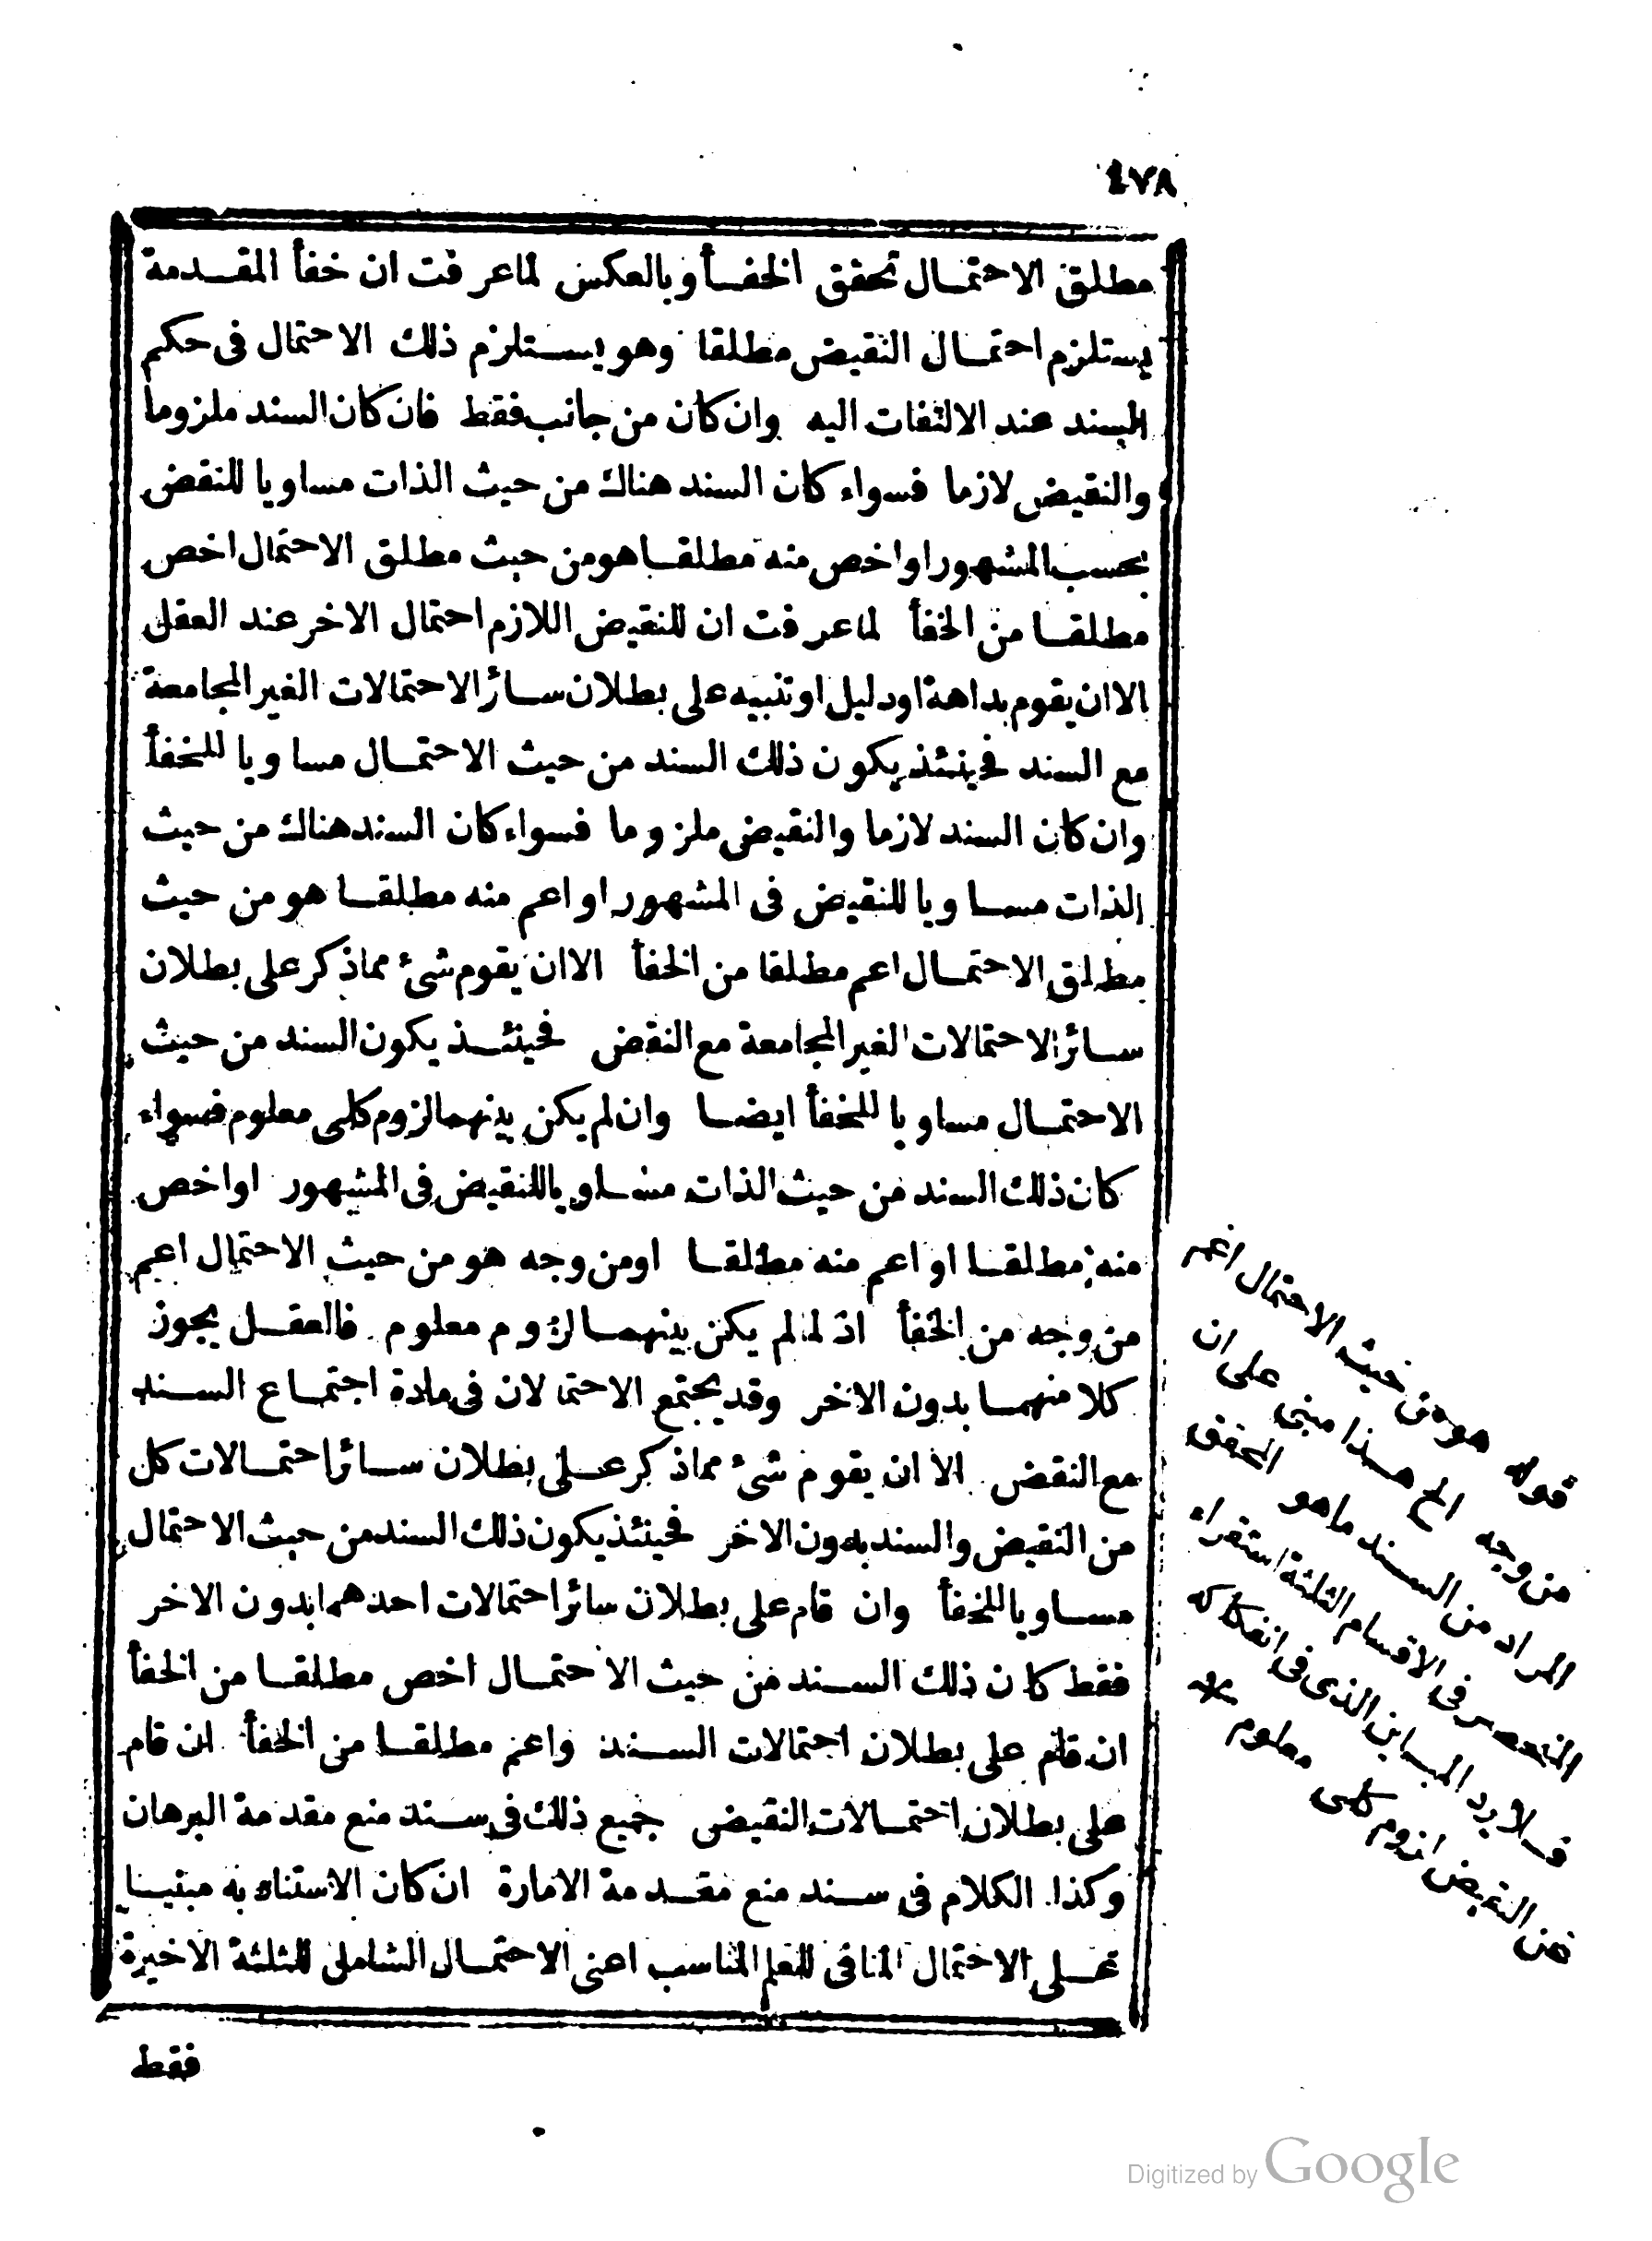 ٤٧٨
مطلق الاحتمال تحقق الخفأ وبالعكس لماعرفت ان خفأ المقدمة
يستلزم احتمال النقيض مطلقا وهو يستلزم ذلك الاحتمال فى حكم
السند عند الالتفات اليه وان كان من جانب فقط فان كان السند ملزوما
والنقيض لازما فسواء كان السند هناك من حيث الذات مساويا للنقض
بحسب المشهور او اخص منه مطلقا هو من حيث مطلق الاحتمال اخص
مطلقا من الخفأ لماعرفت ان للنقيض اللازم احتمال الاخر عند العقل
الا ان يقوم بداهة او دليل او تنبيه على بطلان سائر الاحتمالات الغير المجامعة
مع السند فحينئذ يكون ذلك السند من حيث الاحتمال مساويا للخفأ
وان كان السند لازما والنقيض ملزوما فسواء كان السند هناك من حيث
الذات مساويا للنقيض فى المشهور او اعم منه مطلقا هو من حيث
مطلق الاحتمال اعم مطلقا من الخفأ الا ان يقوم شئ مماذكر على بطلان
سائر الاحتمالات الغير المجامعة مع النقض فحينئذ يكون السند من حيث
الاحتمال مساويا للخفأ ايضا وان لم يكن بينهما لزوم كلى معلوم فسواء
كان ذلك السند من حيث الذات مساويا للنقيض فى المشهور او اخص
منه مطلقا او اعم منه مطلقا اومن وجه هو من حيث الاحتمال اعم
من وجه من الخفأ اذ لما لم يكن بينهما لزوم معلوم فالعقل يجوز
كلا منهما بدون الاخر وقد يجتمع الاحتمالان فى مادة اجتماع السند
مع النقض الا ان يقوم شئ مماذكر على بطلان سائر احتمالات كل
من النقيض والسند بدون الاخر فحينئذ يكون ذلك السند من حيث الاحتمال
مساويا للخفأ وان قام على بطلان سائر احتمالات احدهما بدون الاخر
فقط كان ذلك السند من حيث الاحتمال اخص مطلقا من الخفأ
ان قام على بطلان احتمالات السند واعم مطلقا من الخفأ ان قام
على بطلان احتمالات النقيض جميع ذلك فى سند منع مقدمة البرهان
وكذا الكلام فى سند منع مقدمة الامارة ان كان الاستناد به مبنيا
على الاحتمال المنافى للعلم المناسب اعنى الاحتمال الشامل للثلثة الاخيرة
فقط
قوله هو من حيث الاحتمال اعم
من وجه الخ هذا مبنى على ان
المراد من السند ما هو المحقق
المنحصر فى الاقسام الثلثة استقراء
فلا يرد المباين الذى فى انفكاكه
من النقيض لزوم كلى معلوم
Digitized by Google